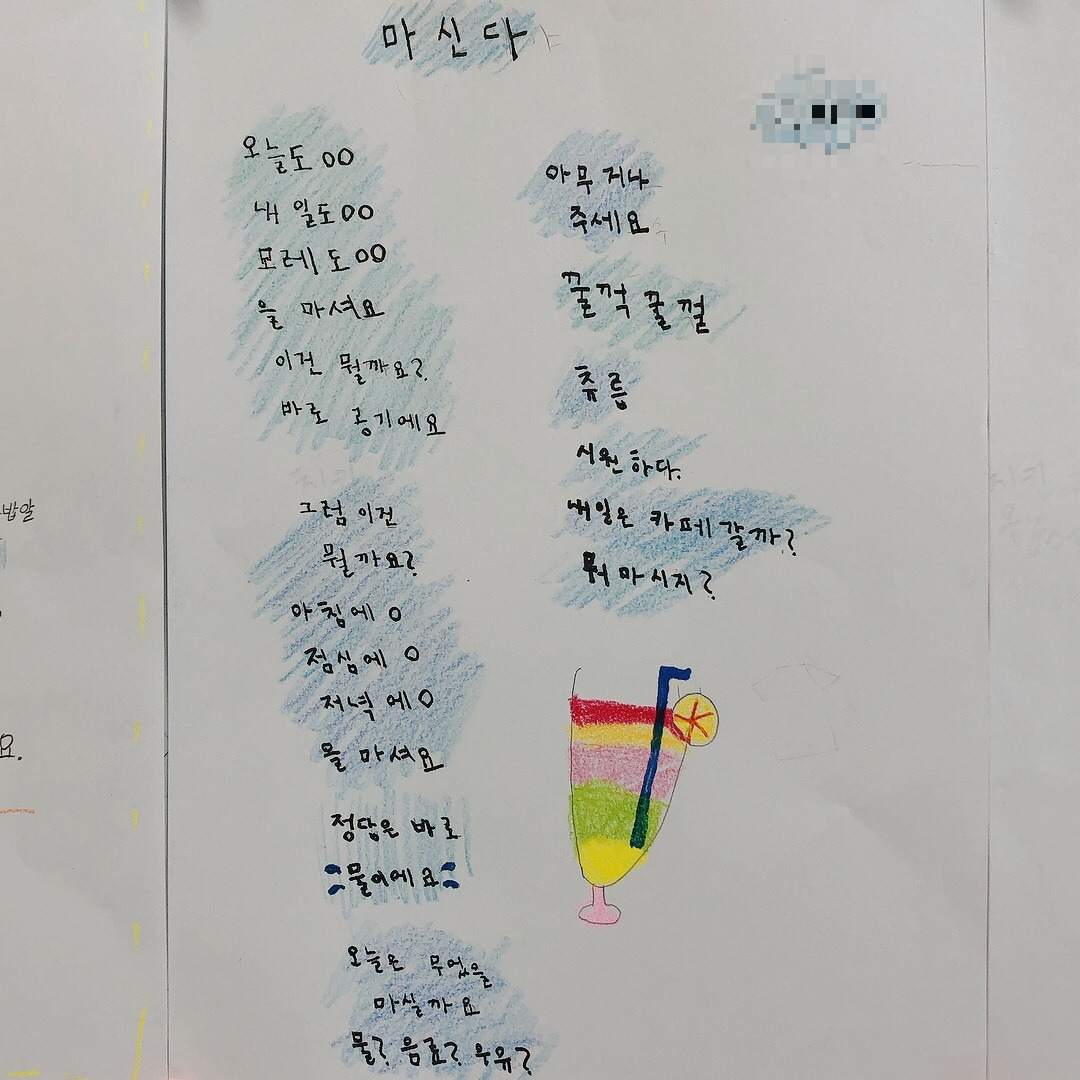 마신다
오늘도 OO
내일도 OO
모레도 OO
을 마셔요
이건 뭘까요?
바로 공기에요
그럼 이건
뭘까요?
아침에 O
점심에 O
저녁에 O
을 마셔요
정답은 바로
물이에요
오늘은 무엇을
마실까요
물? 음료? 우유?
아무거나
주세요
꿀꺽 꿀껄
츄릅
시원하다.
내일은 카페 갈까?
뭐 마시지?
밥알
요.